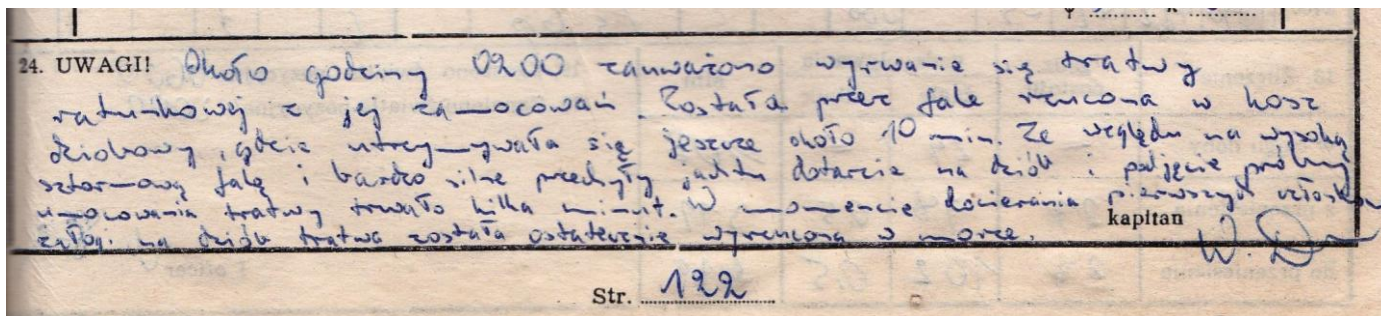 24. UWAGI! Około godziny 0200 zauważono wyrwanie się tratwy
ratunkowej z jej zamocowań. Została przez falę rzucona w kosz
dziobowy, gdzie utrzymywała się jeszcze około 10 min. Ze względu na wysoką
sztormową falę i bardzo silne przechyły jachtu dotarcie na dziób i podjęcie próby
umocowania tratwy trwało kilka minut. W momencie docierania pierwszych członków
załogi na dziób tratwa została ostatecznie wyrzucona w morze.
kapitan
W. D
Str. 122